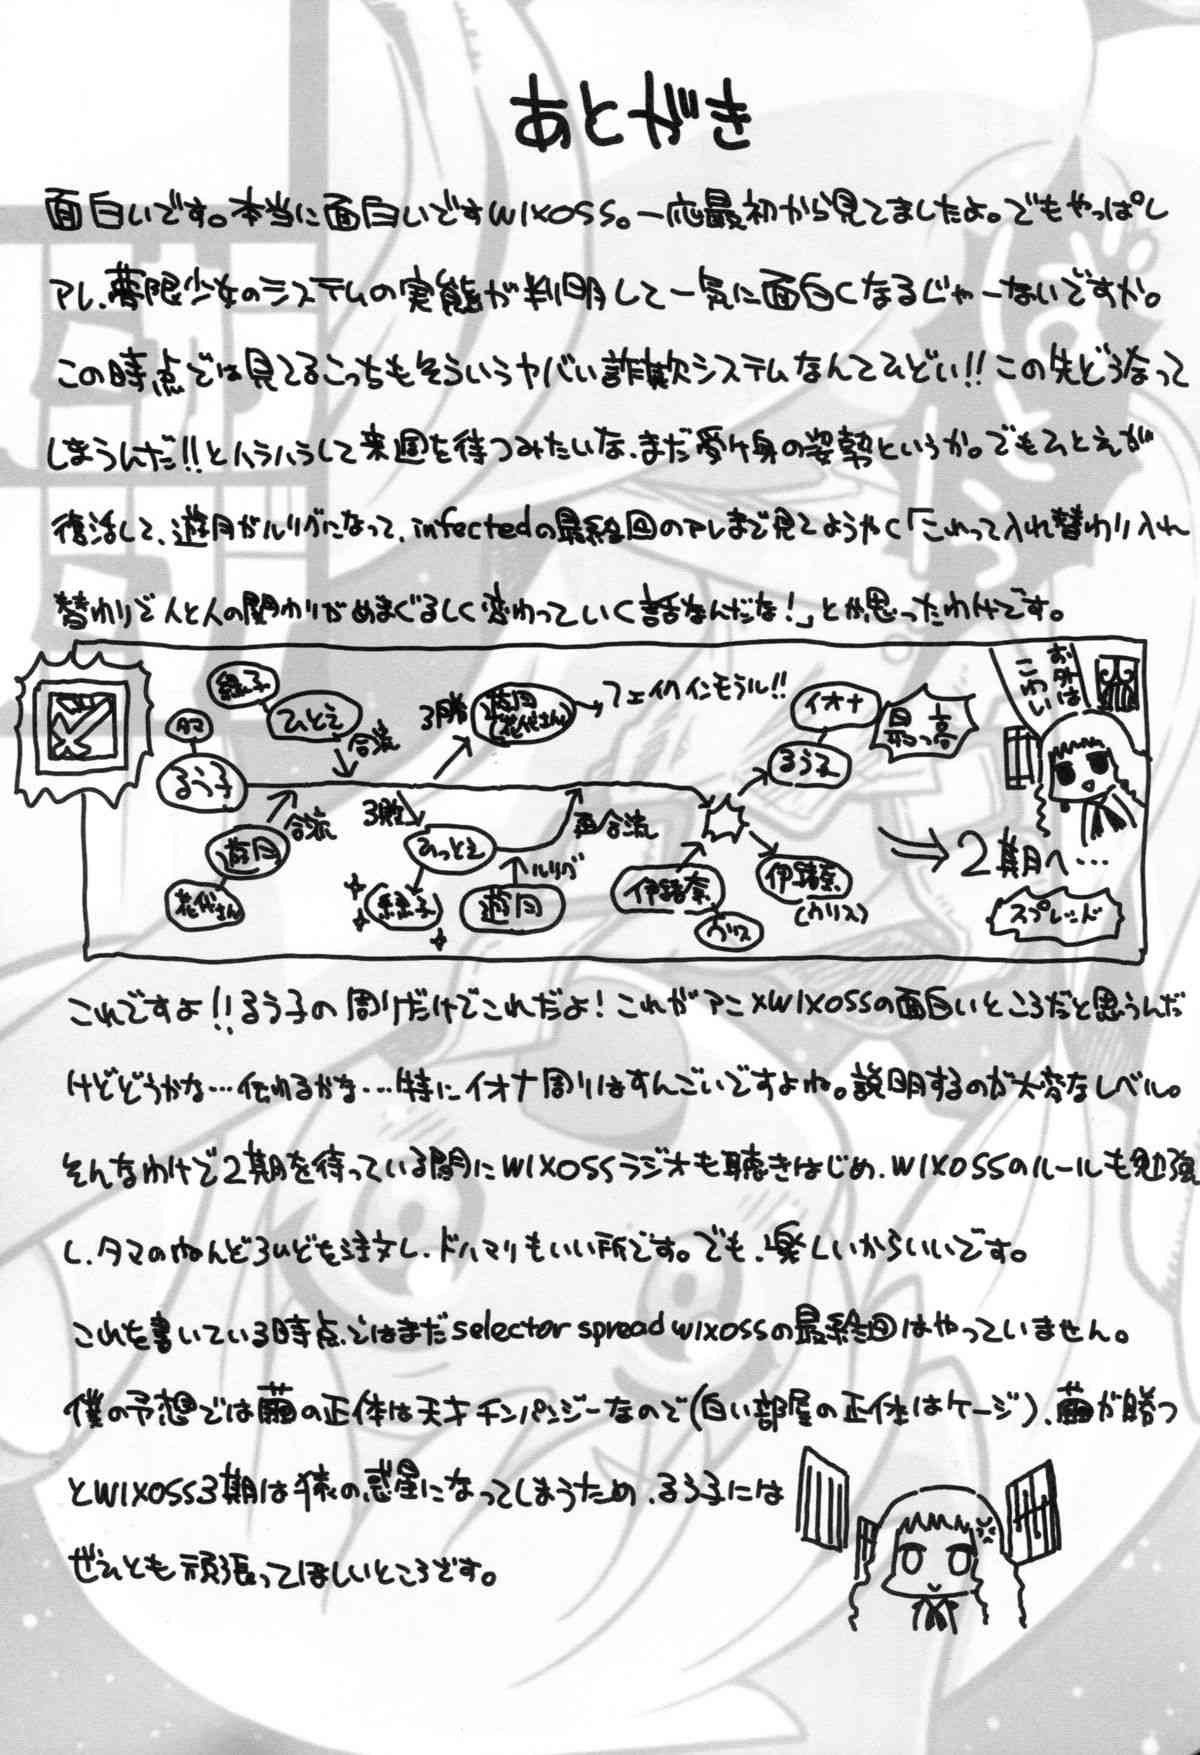 あとがき
面白いです。本当に面白いですWIXOSS。一応最初から見てましたよ。でもやっぱし
アレ、夢限少女のシステムの実態が判明して一気に面白くなるじゃーないですか。
この時点では見てるこっちもそういうヤバい詐欺システムなんてひどい!!この先どうなって
しまうんだ!!とハラハラして来週を待つみたいな、まだ受け身の姿勢というか。でもひとえが
復活して、遊月がルリグになって、infectedの最終回のアレまで見てようやく「これって入れ替わり入れ
替わりで人と人の関わりがめまぐるしく変わっていく話なんだな!」とか思ったわけです。
タマ
るう子
緑子
ひとえ
合流
花代さん
遊月
合流
3勝
遊月
(花代さん)
フェイクインモラル!!
3敗
ひとえ
緑子
再合流
ルリグ
遊月
伊緒奈
ウリス
イオナ
るう子
最っ高
伊緒奈
(ウリス)
2期へ…
スプレッド
お外は
こわい
これですよ!!るう子の周りだけでこれだよ!これがアニメWIXOSSの面白いところだと思うんだ
けどどうかな…伝わるかな…特にイオナ周りはすんごいですよね。説明するのが大変なレベル。
そんなわけで2期を待っている間にWIXOSSラジオも聴きはじめ、WIXOSSのルールも勉強
し、タマのねんどろいどを注文し、ドハマりもいい所です。でも、楽しいからいいです。
これを書いている時点ではまだselector spread wixossの最終回はやっていません。
僕の予想では繭の正体は天才チンパンジーなので(白い部屋の正体はケージ)、繭が勝つ
とWIXOSS3期は猿の惑星になってしまうため、るう子には
ぜひとも頑張ってほしいところです。